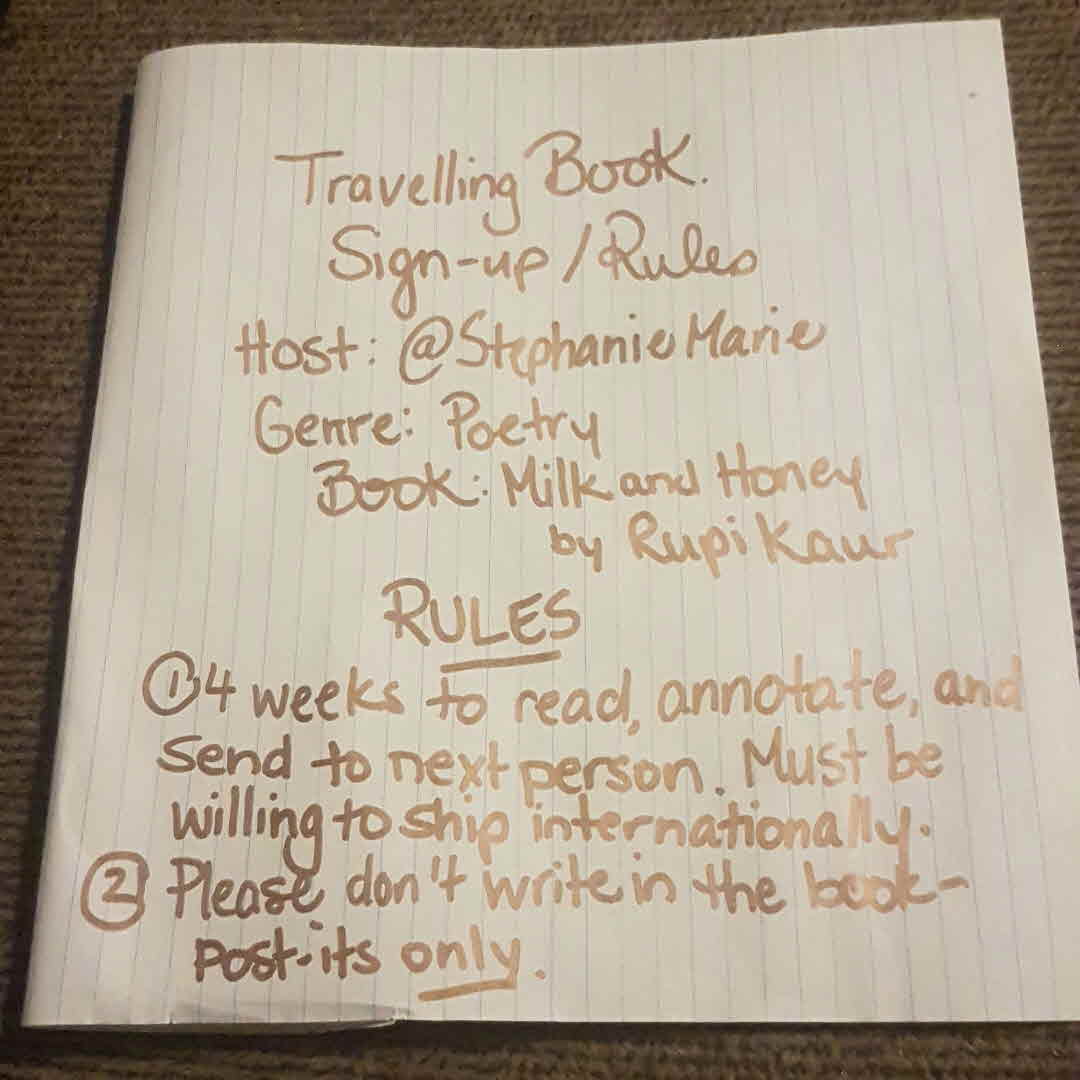 Travelling Book.
Sign-up / Rules
Host: @StephanieMarie
Genre: Poetry
Book: Milk and Honey
by Rupi Kaur
RULES
① 4 weeks to read, annotate, and
send to next person. Must be
willing to ship internationally.
② Please don't write in the book-
post-its only.